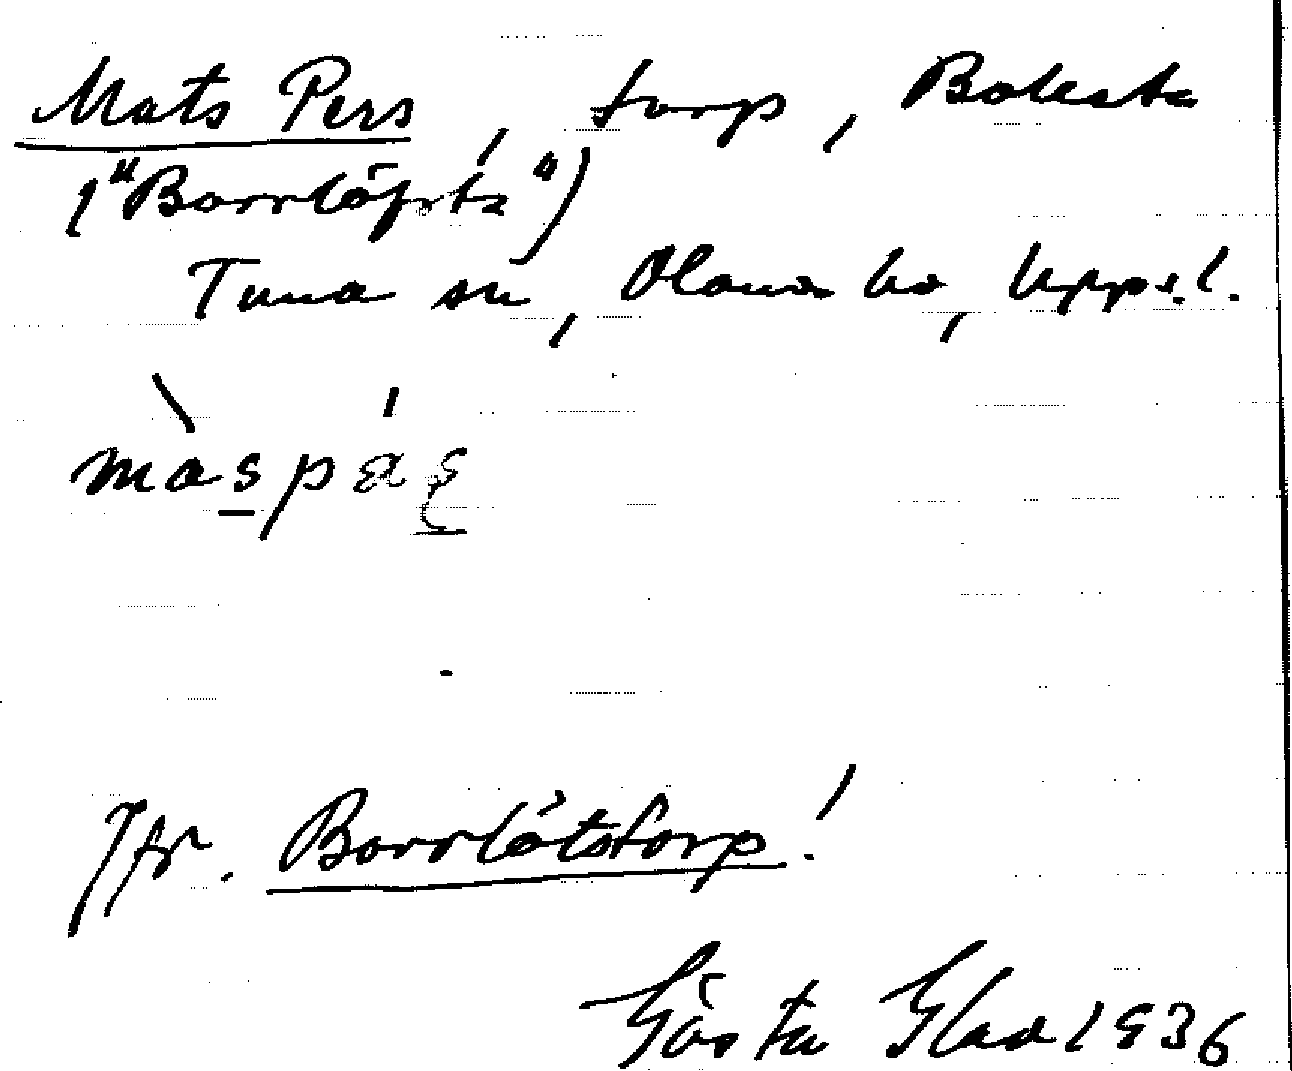 Mats Pers, torp, Bolesta
("Borrlöfsta")
Tuna sn, Olands hd, Uppsl.
màspás
Jfr. Borrlötstorp!
Gösta Glad 1936